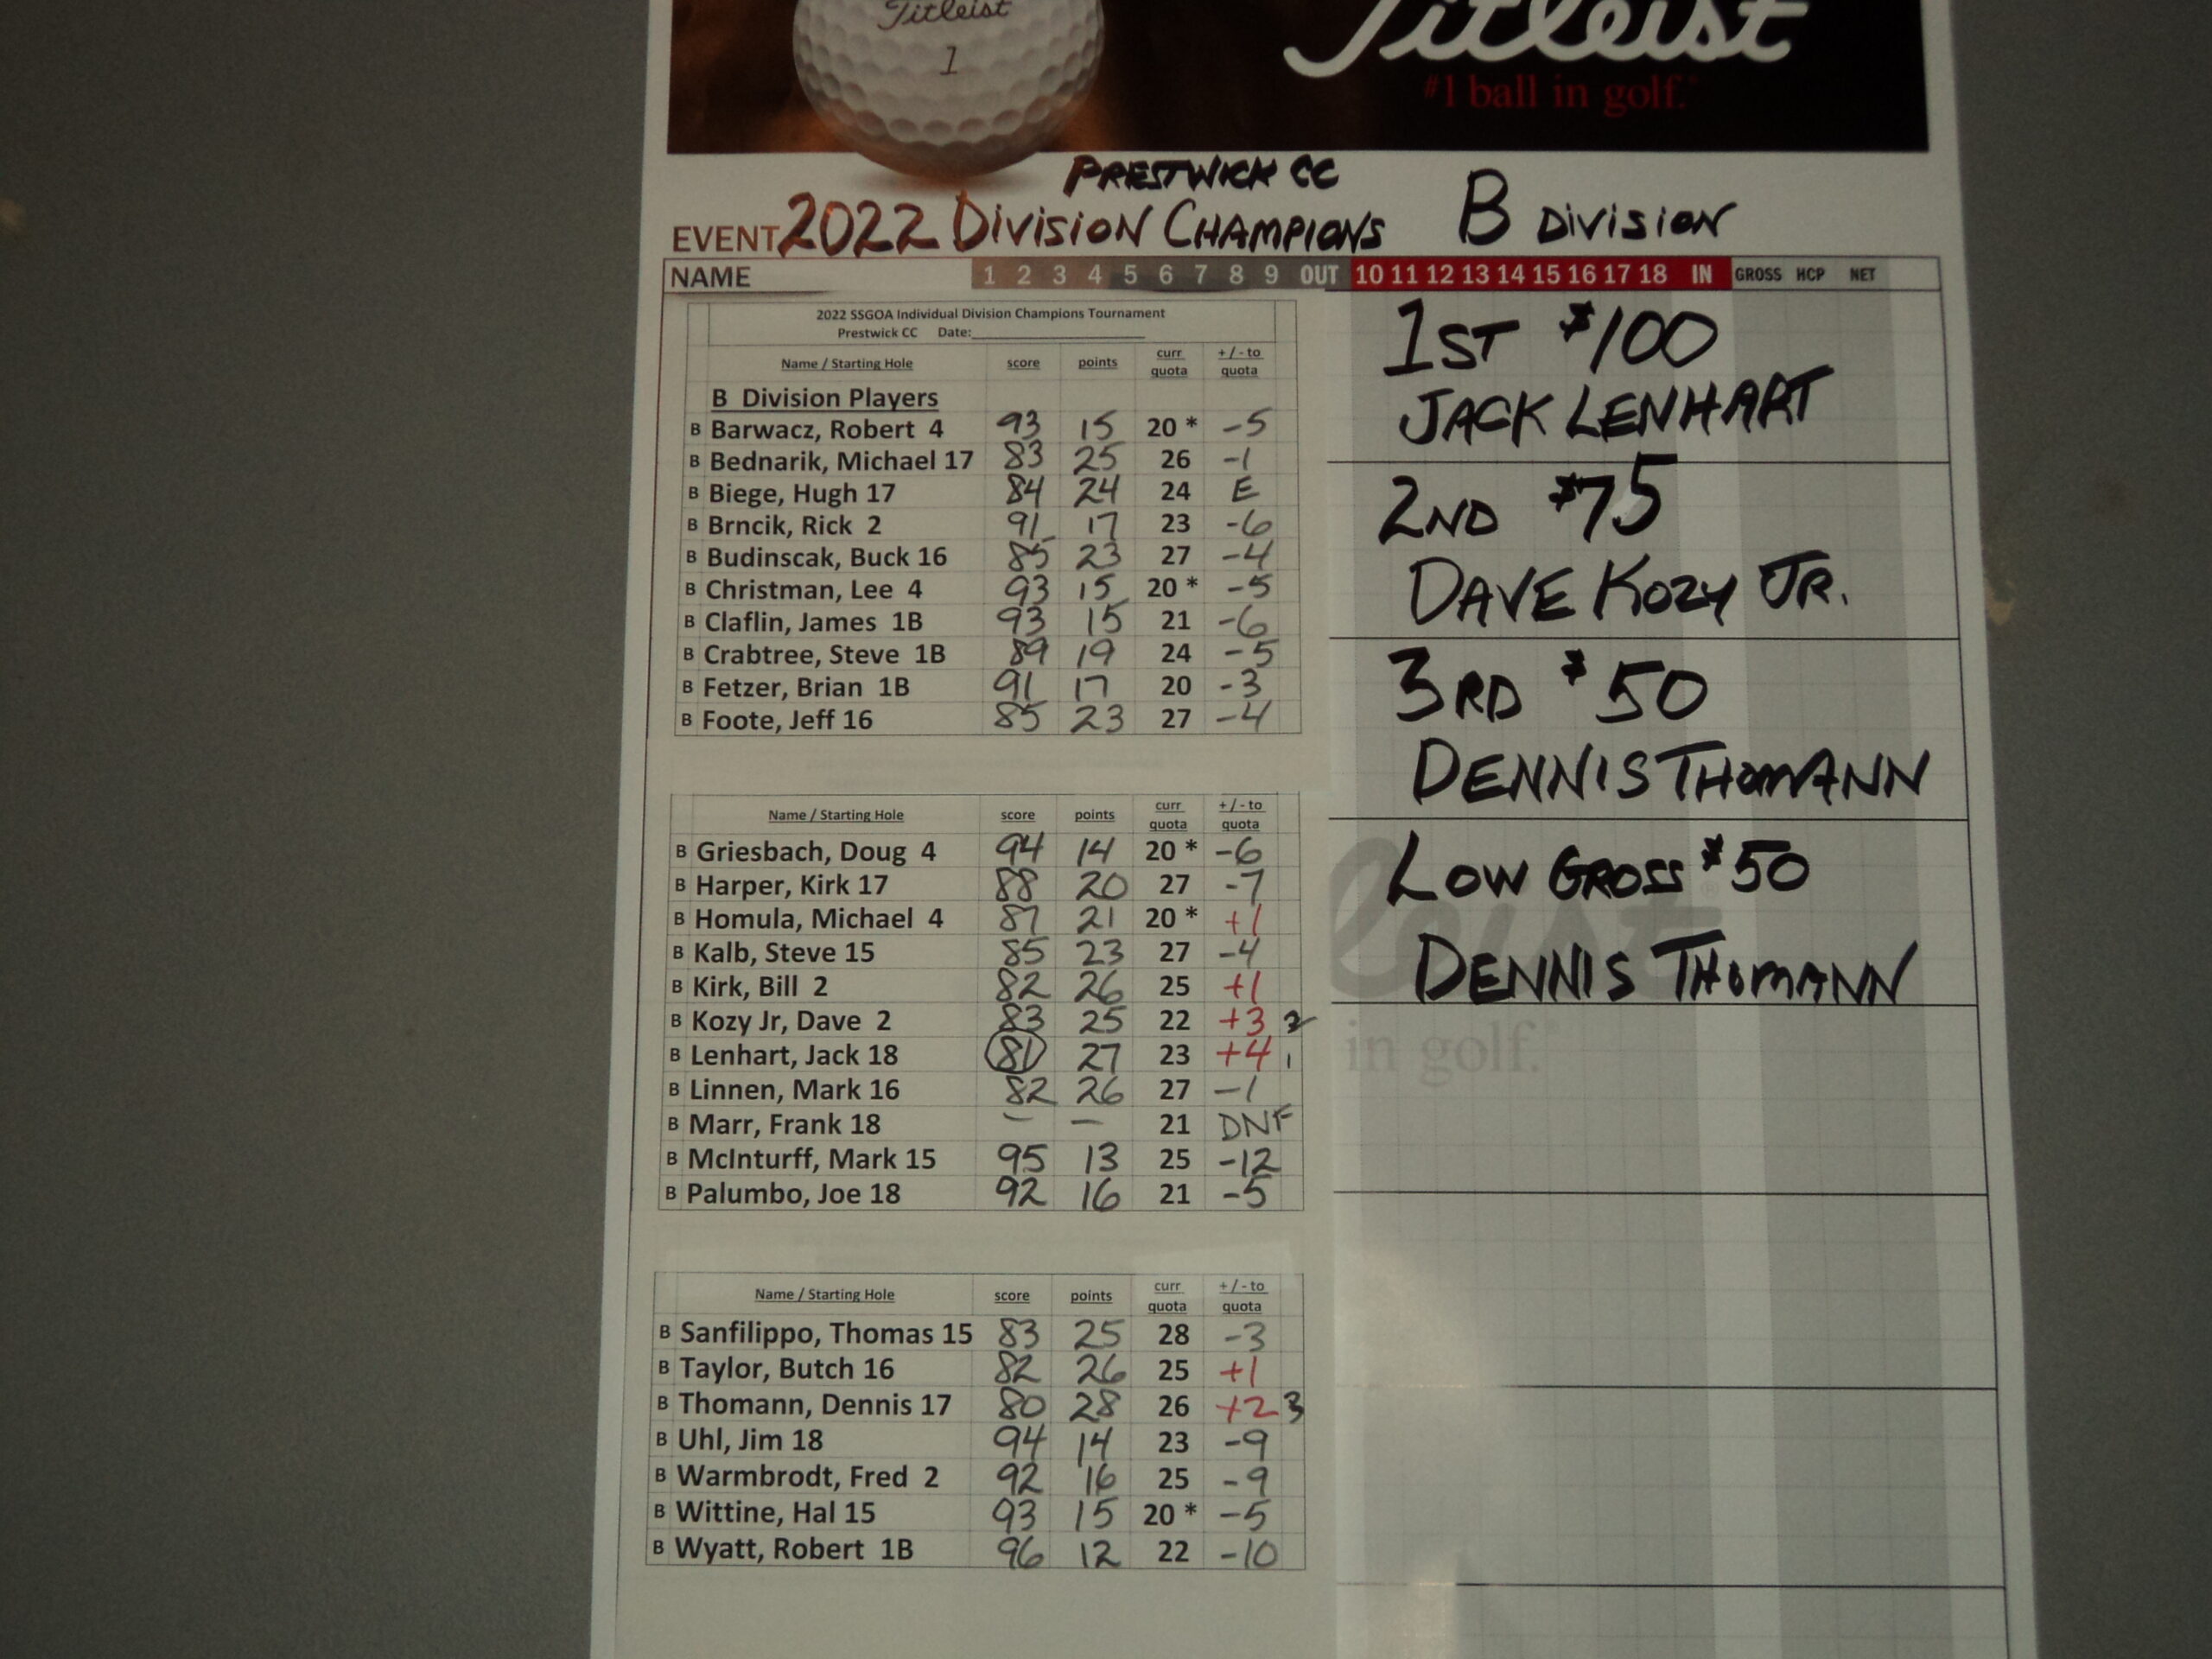 Titleist
1
Titleist
#1 ball in golf.
PRESTWICK CC
EVENT 2022 DIVISION CHAMPIONS B DIVISION
NAME 1 2 3 4 5 6 7 8 9 OUT 10 11 12 13 14 15 16 17 18 IN GROSS HCP NET
2022 SSGOA Individual Division Champions Tournament
Prestwick CC Date:
Name / Starting Hole score points curr quota + / - to quota
B Division Players
B Barwacz, Robert 4 93 15 20 * -5
B Bednarik, Michael 17 83 25 26 -1
B Biege, Hugh 17 84 24 24 E
B Brncik, Rick 2 91 17 23 -6
B Budinscak, Buck 16 85 23 27 -4
B Christman, Lee 4 93 15 20 * -5
B Claflin, James 1B 93 15 21 -6
B Crabtree, Steve 1B 89 19 24 -5
B Fetzer, Brian 1B 91 17 20 -3
B Foote, Jeff 16 85 23 27 -4
Name / Starting Hole score points curr quota + / - to quota
B Griesbach, Doug 4 94 14 20 * -6
B Harper, Kirk 17 88 20 27 -7
B Homula, Michael 4 87 21 20 * +1
B Kalb, Steve 15 85 23 27 -4
B Kirk, Bill 2 82 26 25 +1
B Kozy Jr, Dave 2 83 25 22 +3 2
B Lenhart, Jack 18 81 27 23 +4 1
B Linnen, Mark 16 82 26 27 -1
B Marr, Frank 18 - - 21 DNF
B McInturff, Mark 15 95 13 25 -12
B Palumbo, Joe 18 92 16 21 -5
Name / Starting Hole score points curr quota + / - to quota
B Sanfilippo, Thomas 15 83 25 28 -3
B Taylor, Butch 16 82 26 25 +1
B Thomann, Dennis 17 80 28 26 +2 3
B Uhl, Jim 18 94 14 23 -9
B Warmbrodt, Fred 2 92 16 25 -9
B Wittine, Hal 15 93 15 20 * -5
B Wyatt, Robert 1B 96 12 22 -10
1ST $100
JACK LENHART
2ND $75
DAVE KOZY JR.
3RD $50
DENNIS THOMANN
LOW GROSS $50
DENNIS THOMANN
leist
in golf.